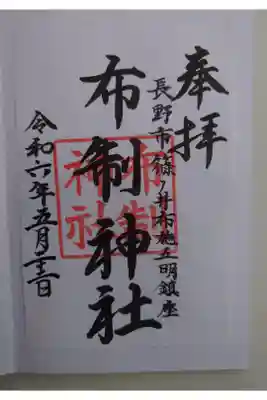 奉拝
長野市篠ノ井布施五明鎮座
布制神社
布制
神社
令和六年五月